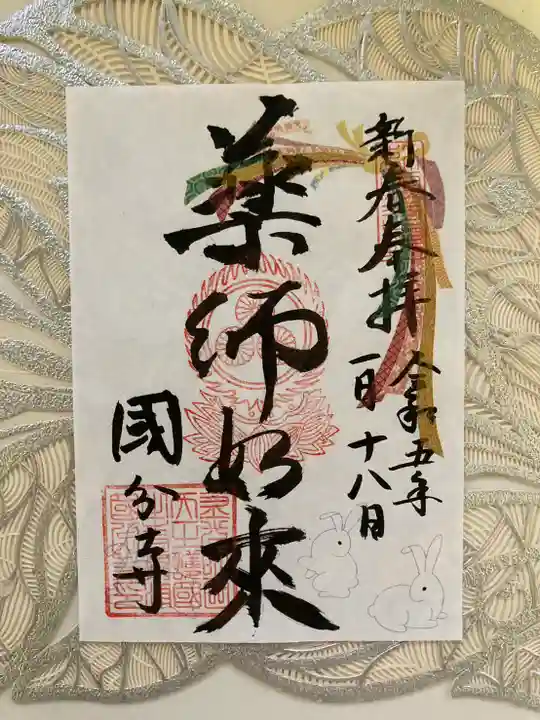 新春奉拝
令和五年
一月十八日
薬師如來
國分寺